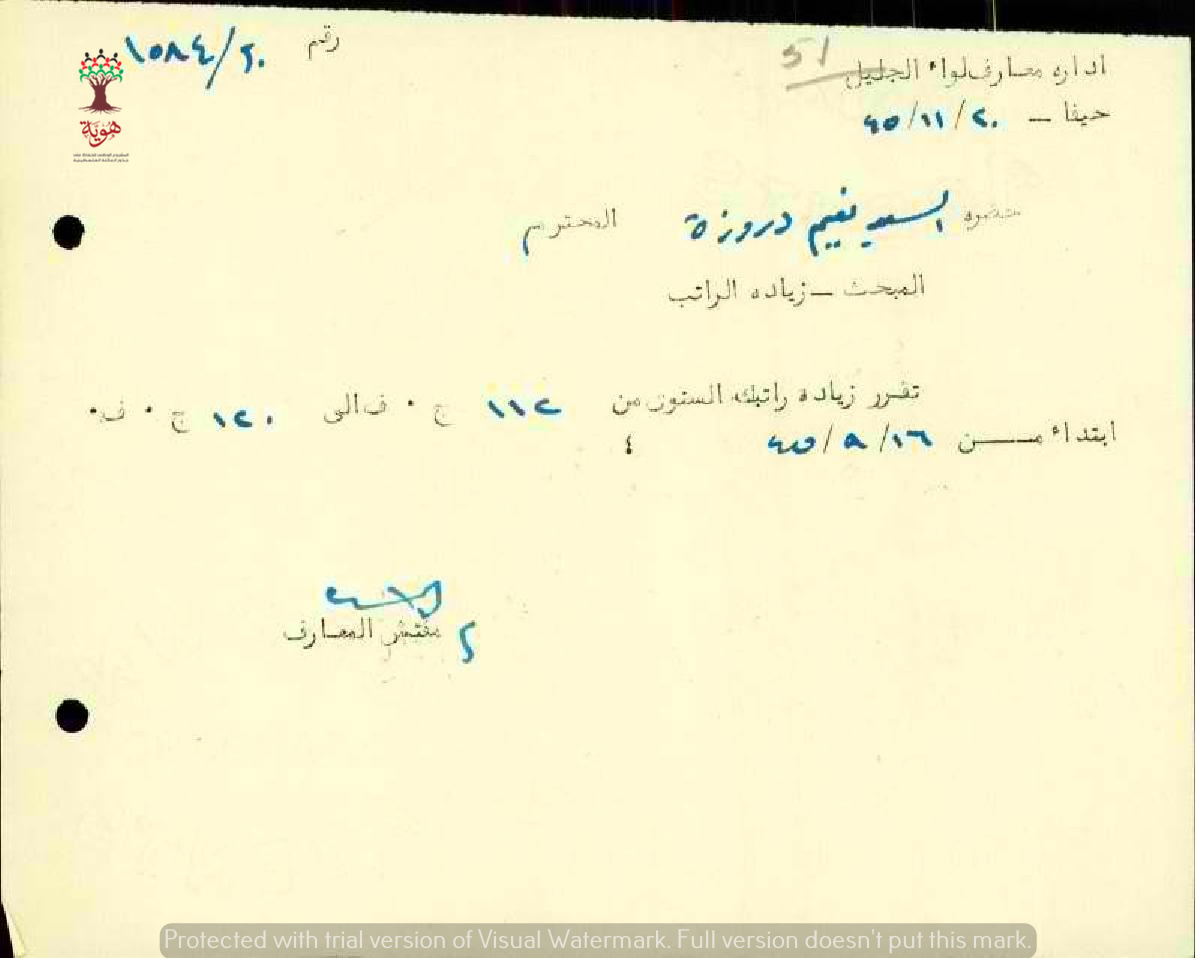 رقم ١٥٨٤/٢٠
51
اداره معارف لواء الجليل
حيفا – ٢٠/١١/٤٥
حضره السيد نعيم دروزة المحترم
المبحث – زياده الراتب
تقرر زيادة راتبك السنوى من ١١٢ ج ٠ ف الى ١٢٠ ج ٠ ف٠
ابتداء مـــن ١٦/٩/٤٥ ٤
مفتش المعارف
هوية
Protected with trial version of Visual Watermark. Full version doesn't put this mark.